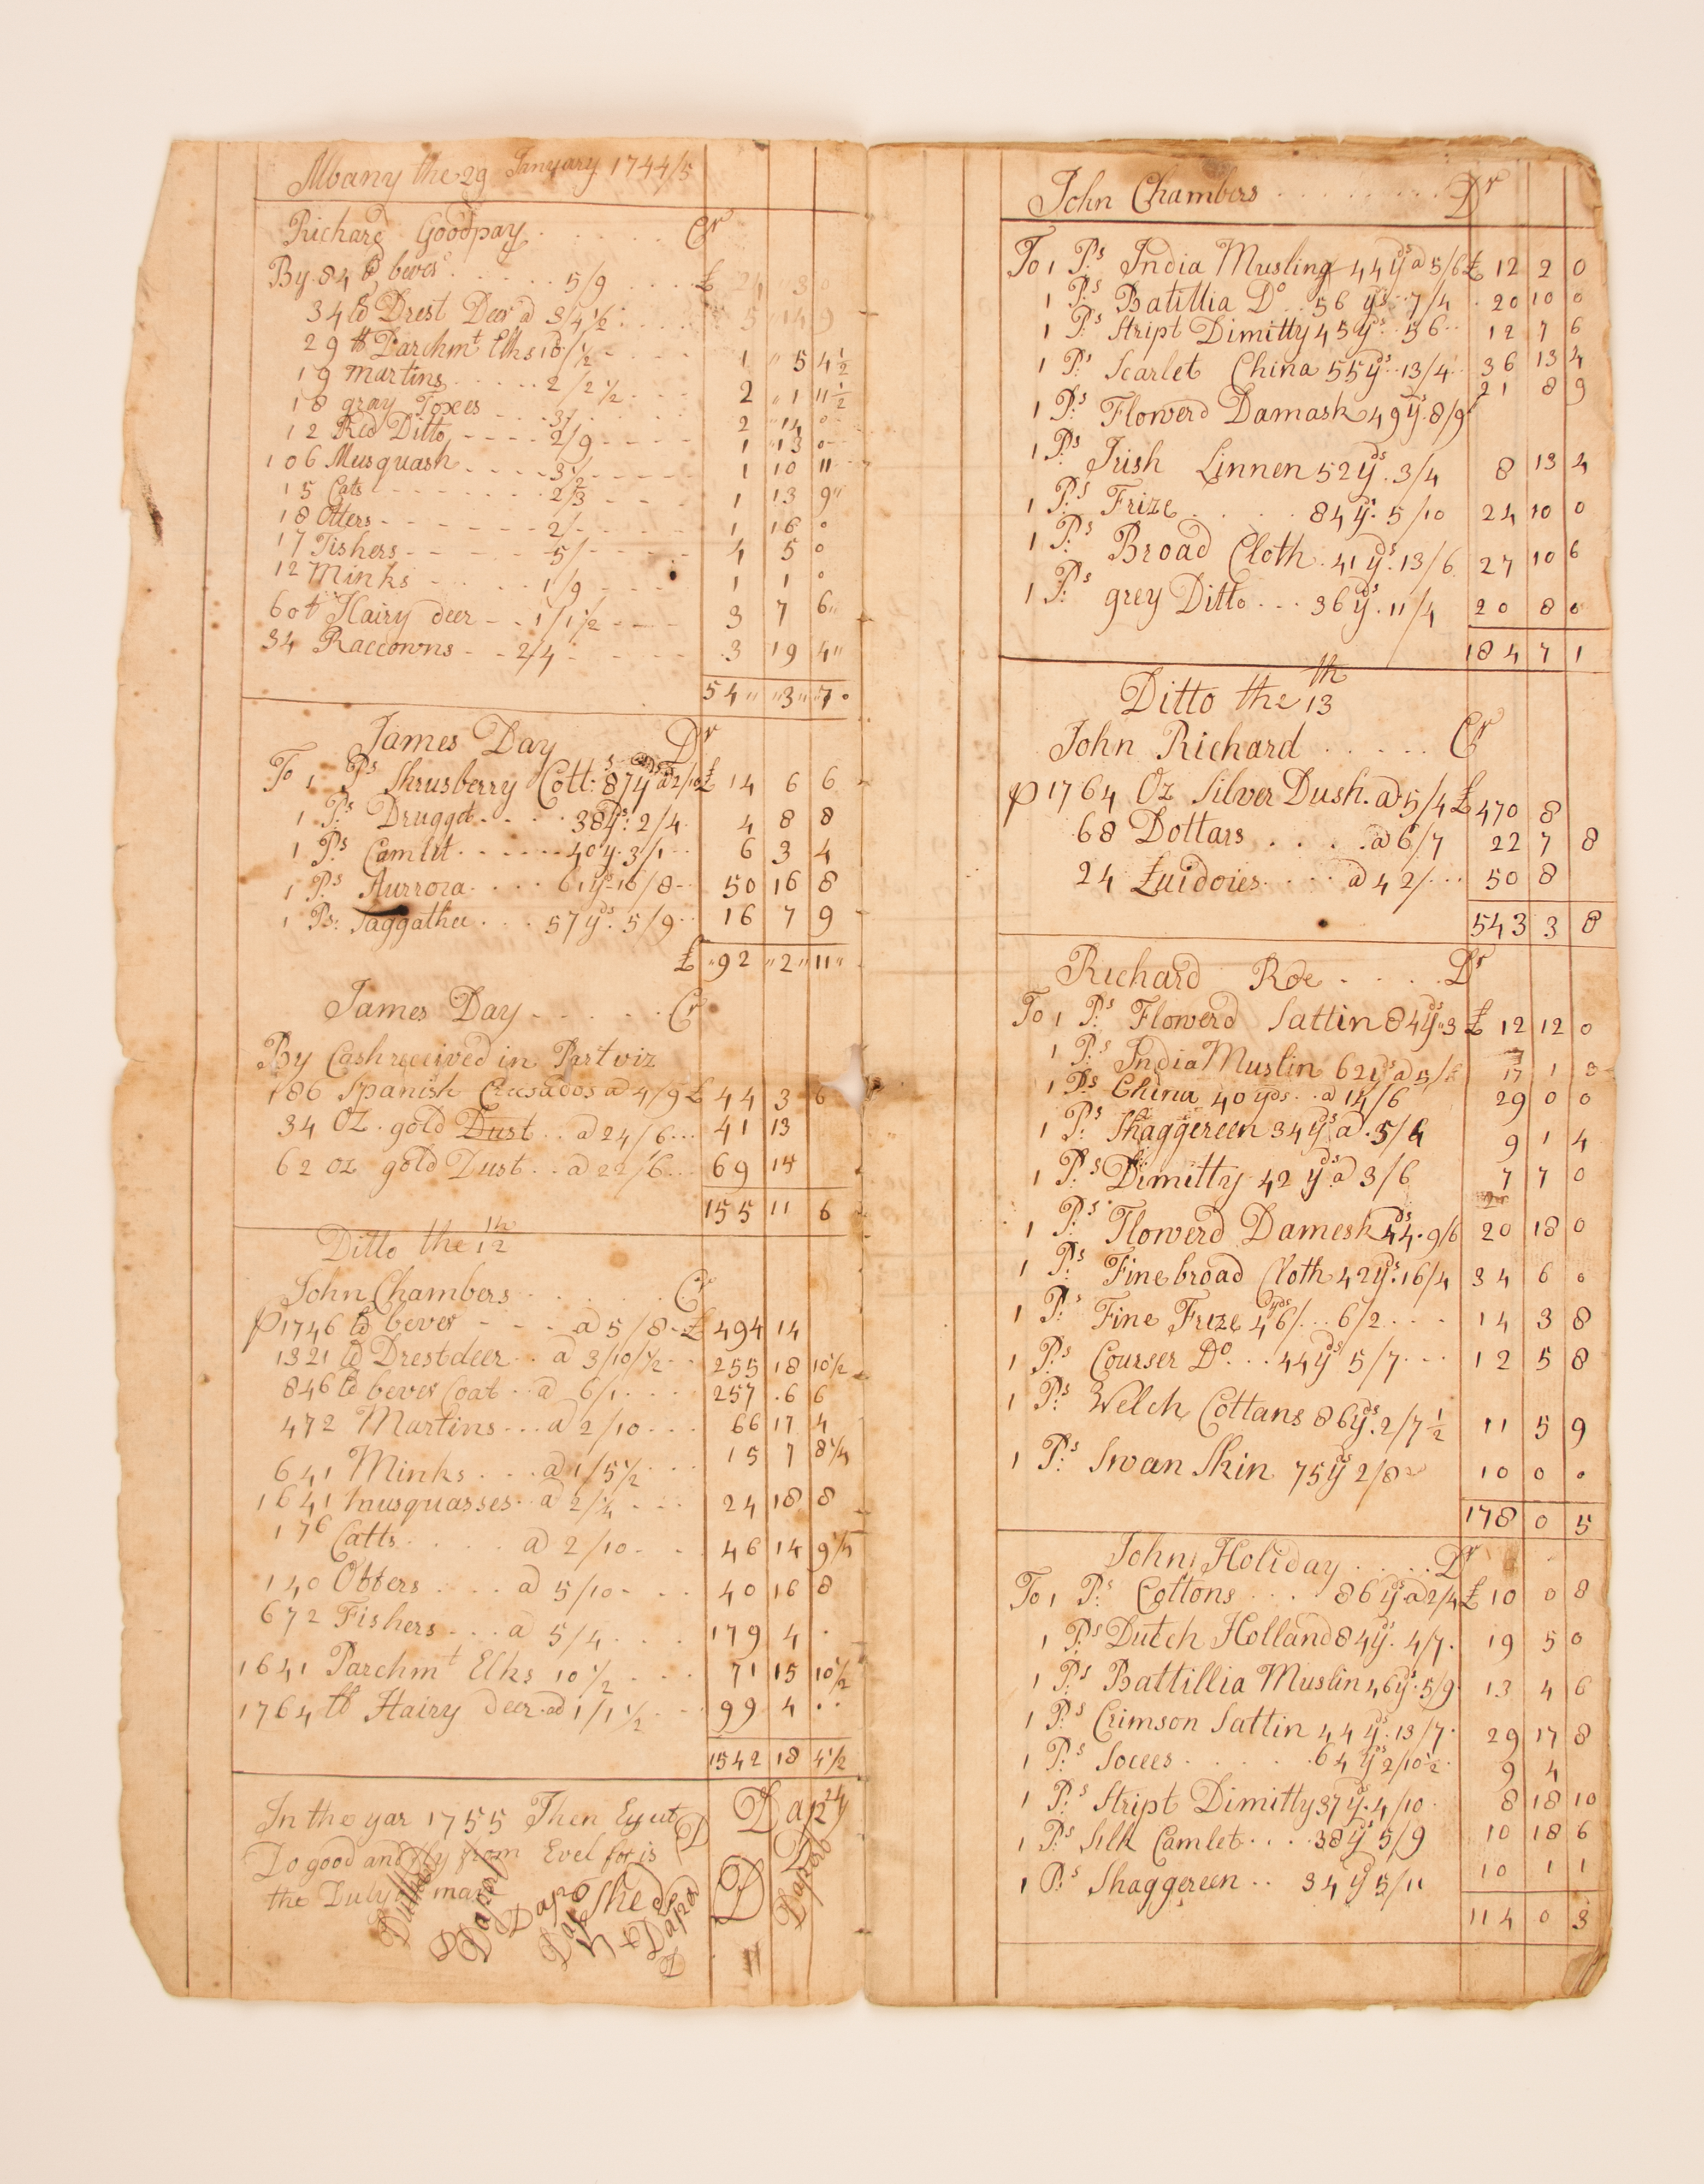 Albany the 29 Janyary 1744/5
Richard Goodpay Cr
By 84 lb bever 5/9 £ 24 3 0
34 lb Drest Deer a 3/4 1/2 5 14 9
29 lb Parchmt Elks 10 1/2 1 5 4 1/2
19 Martins 2/2 1/2 2 1 11 1/2
18 gray Foxes 3/ 2 14 0
12 Red Ditto 2/9 1 13 0
106 Musquash 3 1/2 1 10 11
15 Cats 2/3 1 13 9
18 Otters 2/ 1 16 0
17 Fishers 5/ 4 5 0
12 Minks 1/9 1 1 0
60 lb Hairy deer 1/1 1/2 3 7 6
34 Raccowns 2/4 3 19 4
54 3 7
James Day Dr
To 1 Ps Shrusberry Cott: 87 yds a 2/10 £ 14 6 6
1 Ps Drugget 38 yds 2/4 4 8 8
1 Ps Camlet 40 y 3/1 6 3 4
1 Ps Aurrora 61 yds 16/8 50 16 8
1 Ps: Taggathee 57 yds 5/9 16 7 9
£ 92 2 11
James Day Cr
By Cash received in Part viz
186 Spanish Crusados a 4/9 £ 44 3 6
34 OZ. gold Dust a 24/6 41 13
62 oz gold Dust a 22/6 69 15
155 11 6
Ditto the 12th
John Chambers Cr
p 1746 lb bever a 5/8 £ 494 14
1321 lb Drest deer a 3/10 1/2 255 18 10 1/2
846 lb bever Coat a 6/1 257 6 6
472 Martins a 2/10 66 17 4
641 Minks a 1/5 1/2 15 7 8 1/4
1641 musquasses a 2/4 24 18 8
176 Catts a 2/10 46 14 9 1/4
140 Otters a 5/10 40 16 8
672 Fishers a 5/4 179 4
1641 Parchmt Elks 10 1/2 71 15 10 1/2
1764 lb Hairy deer ad 1/1 1/2 99 4
1542 18 4 1/2
In the yar 1755 Then
Do good and fly from Evel for is
the Duly of man
John Chambers Dr
To 1 Ps India Musling 44 yds a 5/6 £ 12 2 0
1 Ps Batillia Do 56 yds 7/4 20 10 0
1 Ps Stript Dimitty 45 yds 5 6 12 7 6
1 Ps Scarlet China 55 yds 13/4 36 13 4
1 Ps Flowerd Damask 49 yds 8/9 21 8 9
1 Ps Irish Linnen 52 yds 3/4 8 13 4
1 Ps Frize 84 yds 5/10 24 10 0
1 Ps Broad Cloth 41 yds 13/6 27 10 6
1 Ps grey Ditto 36 yds 11/4 20 8 0
184 7 1
Ditto the 13th
John Richard Cr
p 1764 Oz Silver Dush. ad 5/4 £ 470 8
68 Dollars a 6/7 22 7 8
24 Luidories a 42/ 50 8
543 3 8
Richard Roe Dr
To 1 Ps Flowerd Sattin 84 yds 3 £ 12 12 0
1 Ps India Muslin 62 yds a 5/6 17 1 0
1 Ps China 40 yds a 14/6 29 0 0
1 Ps Shaggereen 34 yds a 5/4 9 1 4
1 Ps Dimitty 42 yds a 3/6 7 7 0
1 Ps Flowerd Damesk 44 yds 9/6 20 18 0
1 Ps Fine broad Cloth 42 yds 16/4 34 6 0
1 Ps Fine Frize 46 yds 6/2 14 3 8
1 Ps Courser Do 44 yds 5/7 12 5 8
1 Ps Welch Cottans 86 yds 2/7 1/2 11 5 9
1 Ps Swan Skin 75 yds 2/8 10 0 0
178 0 5
John Holiday Dr
To 1 Ps Cottons 86 yds a 2/4 £ 10 0 8
1 Ps Dutch Holland 84 yds 4/7 19 5 0
1 Ps Battillia Muslin 46 yds 5/9 13 4 6
1 Ps Crimson Sattin 44 yds 13/7 29 17 8
1 Ps Socees 64 yds 2/10 1/2 9 4
1 Ps Stript Dimitty 37 yds 4/10 8 18 10
1 Ps Silk Camlet 38 yds 5/9 10 18 6
1 Ps Shaggereen 34 yds 5/11 10 1 1
114 0 3